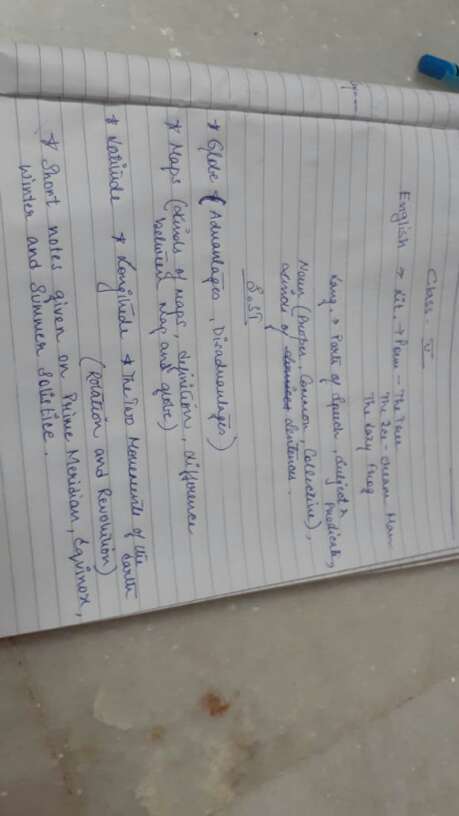 Class V
English → Lit. → Poem - The Tree
The Ice-cream Man
The Lazy Frog
Lang. → Parts of Speech, Subject &
Predicate,
Noun (Proper, Common, Collective),
kinds of sentences.
S.ST
* Globe (Advantages, Disadvantages)
* Maps (kinds of maps, definition, difference
between map and globe)
* Latitude * Longitude * The Two Movements of the
Earth
(Rotation and Revolution)
* Short notes given on Prime Meridian, Equinox,
Winter and Summer Solstice.